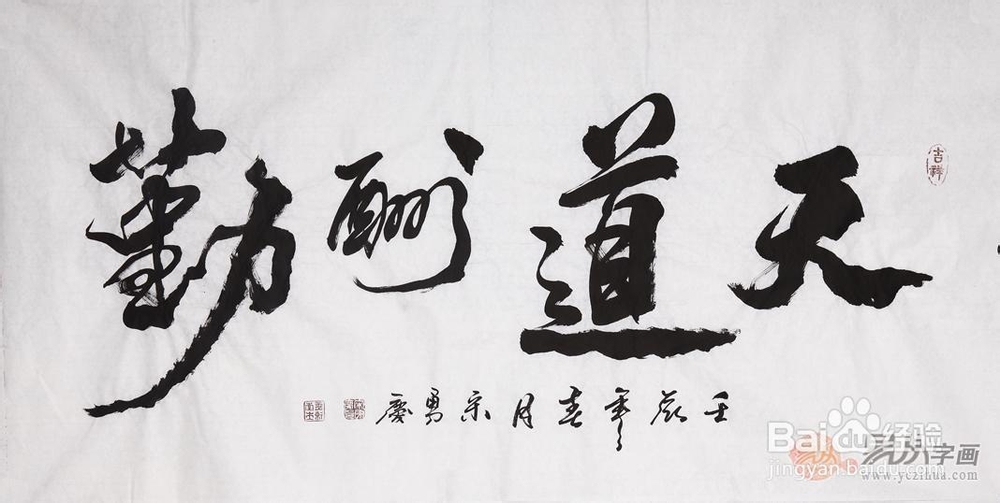 天道酬勤
吉祥
壬辰年春月宗勇慶
Baidu经验
jingyan.baidu.com
字画
www.yczihua.com